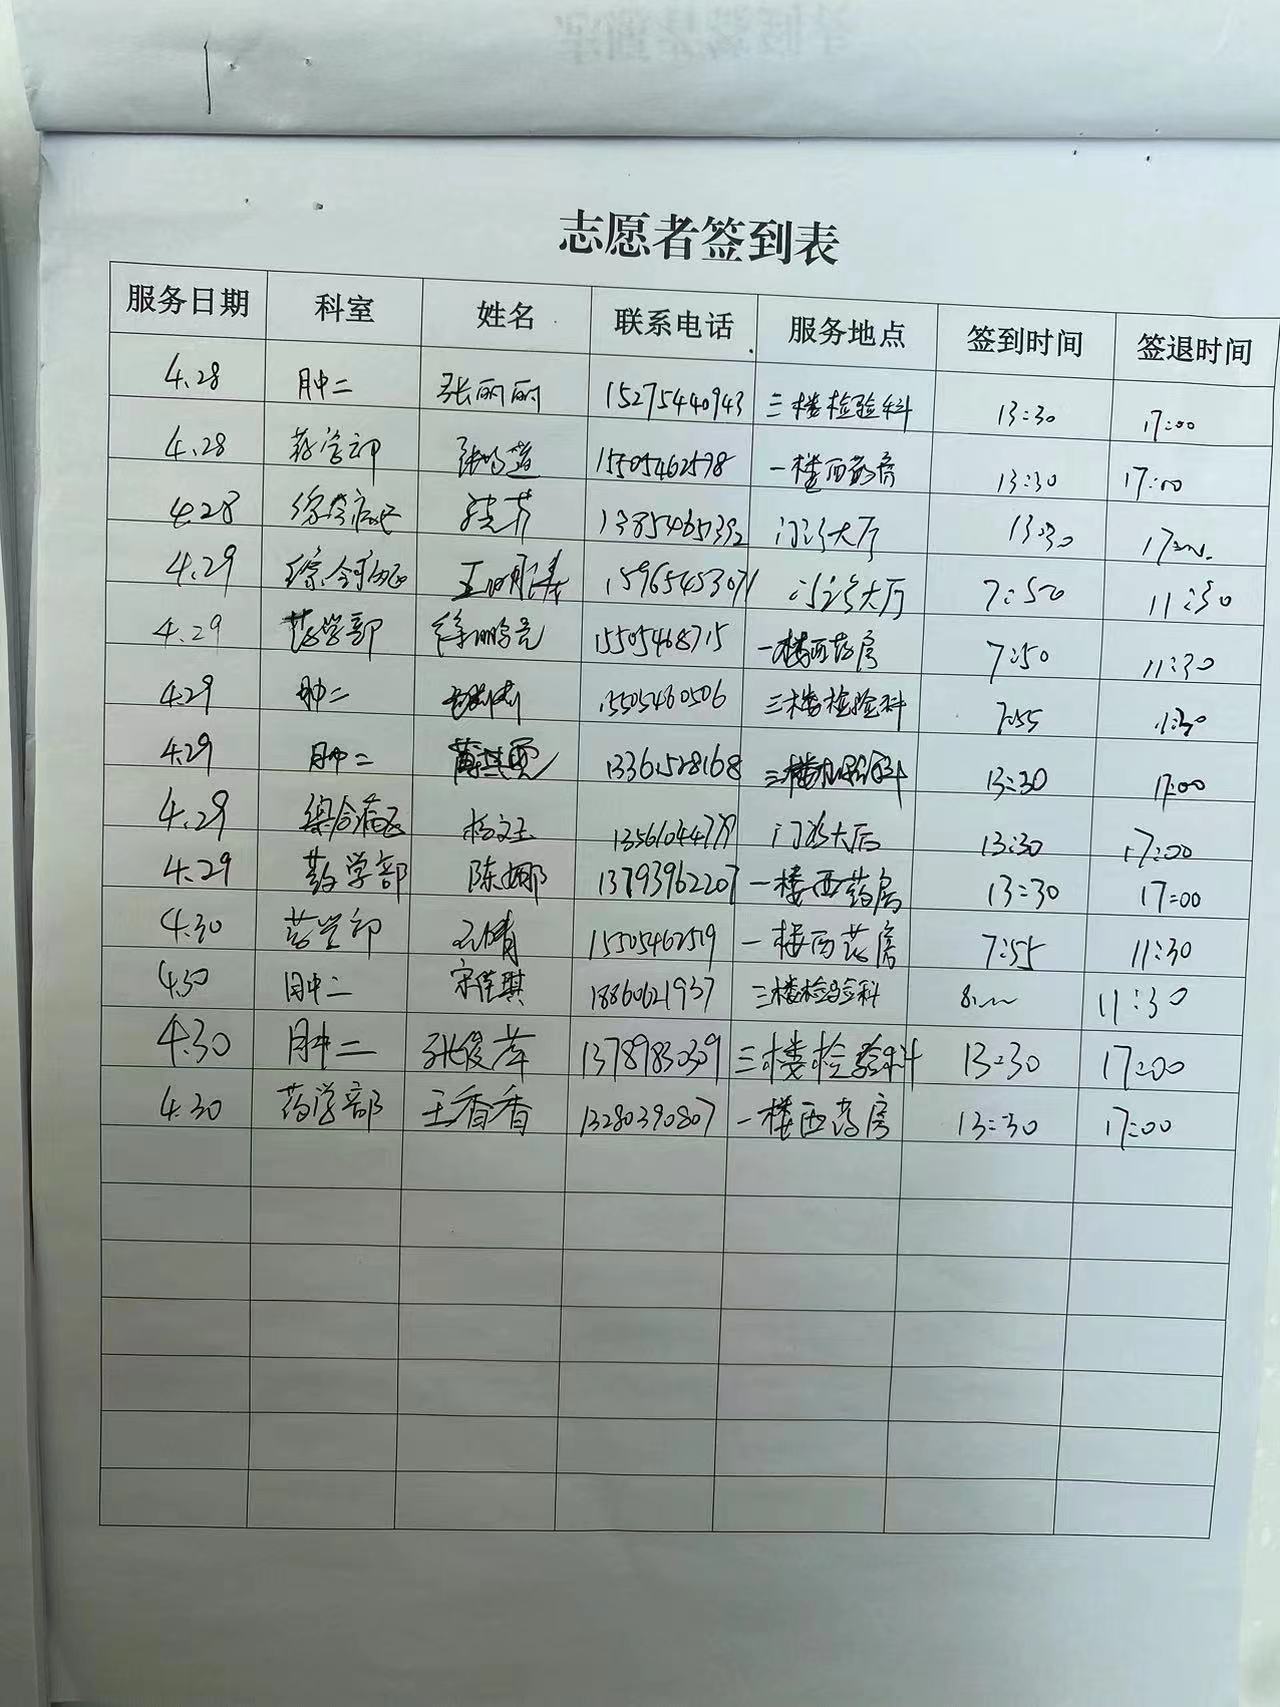 志愿者签到表
服务日期 科室 姓名 联系电话 服务地点 签到时间 签退时间
4.28 肿二 张丽丽 15275440943 三楼检验科 13:30 17:00
4.28 药学部 15505462598 一楼西药房 13:30 17:00
4.28 综合病区 门诊大厅 13:30
4.29 综合病区 15965453071 门诊大厅 7:50 11:30
4.29 药学部 徐鹏亮 15505468715 一楼西药房 7:50 11:30
4.29 肿二 15505460506 三楼检验科 7:55 11:30
4.29 肿二 13361528168 三楼检验科 13:30 17:00
4.29 综合病区 杨文玉 门诊大厅 13:30 17:00
4.29 药学部 陈娜 13793962207 一楼西药房 13:30 17:00
4.30 药学部 15505462519 一楼西药房 7:55 11:30
4.30 肿二 宋佳琪 18860621937 三楼检验科 11:30
4.30 肿二 张俊萍 13789830309 三楼检验科 13:30 17:00
4.30 药学部 王香香 13280390807 一楼西药房 13:30 17:00